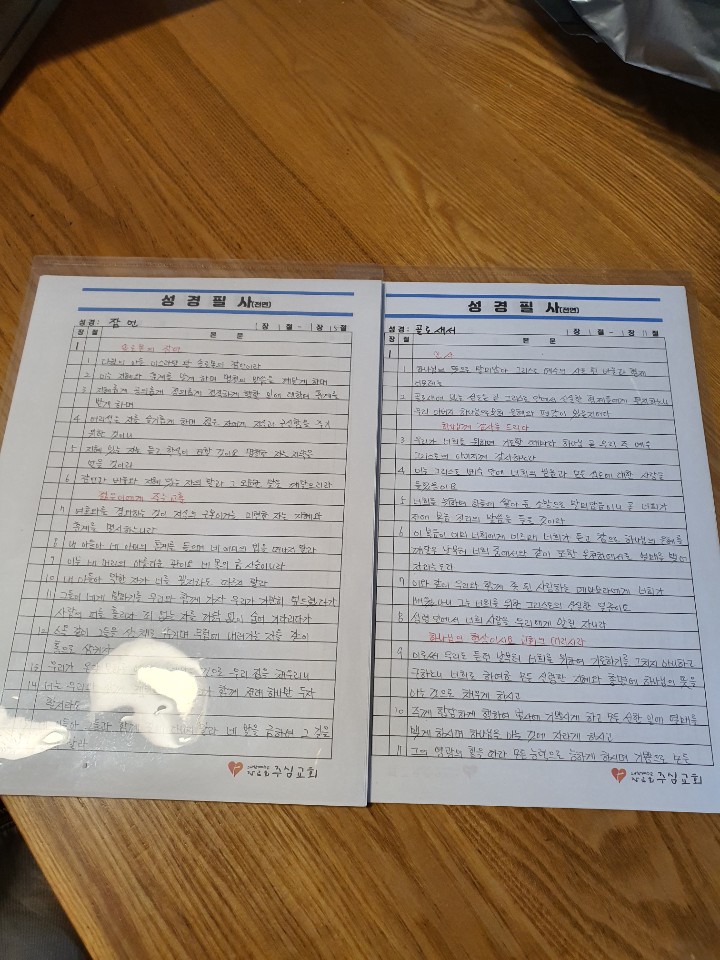 성 경 필 사(전면)
성 경: 잠 언 1 장 1 절 - 1 장 15 절
장 절 본 문
1 솔로몬의 잠언
1 다윗의 아들 이스라엘 왕 솔로몬의 잠언이라
2 이는 지혜와 훈계를 알게 하며 명철의 말씀을 깨닫게 하며
3 지혜롭게 공의롭게 정의롭게 정직하게 행할 일에 대하여 훈계를
받게 하며
4 어리석은 자를 슬기롭게 하며 젊은 자에게 지식과 근신함을 주기
위한 것이니
5 지혜 있는 자는 듣고 학식이 더할 것이요 명철한 자는 지략을
얻을 것이라
6 잠언과 비유와 지혜 있는 자의 말과 그 오묘한 말을 깨달으리라
젊은이에게 주는 교훈
7 여호와를 경외하는 것이 지식의 근본이거늘 미련한 자는 지혜와
훈계를 멸시하느니라
8 내 아들아 네 아비의 훈계를 들으며 네 어미의 법을 떠나지 말라
9 이는 네 머리의 아름다운 관이요 네 목의 금 사슬이니라
10 내 아들아 악한 자가 너를 꾈지라도 따르지 말라
11 그들이 네게 말하기를 우리와 함께 가자 우리가 가만히 엎드렸다가
사람의 피를 흘리자 죄 없는 자를 까닭 없이 숨어 기다리다가
12 스올 같이 그들을 산 채로 삼키며 무덤에 내려가는 자들 같이
통으로 삼키자
13 우리가 온 으로 우리 집을 채우리니
14 너는 우리와 함께 전대 하나만 두자
할지라도
들아 그들과 함께 말라 네 발을 금하여 그 길을
말라
주심교회
성 경 필 사(전면)
성 경: 골로새서 1 장 1 절 - 1 장 11 절
장 절 본 문
1 인 사
1 하나님의 뜻으로 말미암아 그리스도 예수의 사도 된 바울과 형제
디모데는
2 골로새에 있는 성도들 곧 그리스도 안에서 신실한 형제들에게 편지하노니
우리 아버지 하나님으로부터 은혜와 평강이 있을지어다
하나님께 감사를 드리다
3 우리가 너희를 위하여 기도할 때마다 하나님 곧 우리 주 예수
그리스도의 아버지께 감사하노라
4 이는 그리스도 예수 안에 너희의 믿음과 모든 성도에 대한 사랑을
들었음이요
5 너희를 위하여 하늘에 쌓아 둔 소망으로 말미암음이니 곧 너희가
전에 복음 진리의 말씀을 들은 것이라
6 이 복음이 이미 너희에게 이르매 너희가 듣고 참으로 하나님의 은혜를
깨달은 날부터 너희 중에서와 같이 또한 온 천하에서도 열매를 맺어
자라는도다
7 이와 같이 우리와 함께 종 된 사랑하는 에바브라에게 너희가
배웠나니 그는 너희를 위한 그리스도의 신실한 일꾼이요
8 성령 안에서 너희 사랑을 우리에게 알린 자니라
하나님의 형상이시요 교회의 머리시라
9 이로써 우리도 듣던 날부터 너희를 위하여 기도하기를 그치지 아니하고
구하노니 너희로 하여금 모든 신령한 지혜와 총명에 하나님의 뜻을
아는 것으로 채우게 하시고
10 주께 합당하게 행하여 범사에 기쁘시게 하고 모든 선한 일에 열매를
맺게 하시며 하나님을 아는 것에 자라게 하시고
11 그의 영광의 힘을 따라 모든 능력으로 능하게 하시며 기쁨으로 모든
주심교회